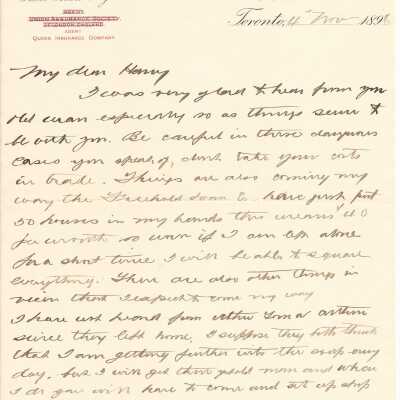 AGENT
UNION ASSURANCE SOCIETY
OF LONDON, ENGLAND
AGENT
QUEEN INSURANCE COMPANY
Toronto, 4 Nov 189
My dear Harry
I was very glad to hear from you
old man especially so as things seem to
be with you. Be careful in those dangerous
cases you speak of, don't take your
in trade. Things are also coming my
way the Freehold Loan Co have just put
50 houses in my hands this means 40
per month so even if I am left alone
for a short time I will be able to square
everything. There are also other things in
view that I expect to come my way
I have not heard from either or Arthur
since they left home, I suppose they both think
that I am getting further into the soup every
day, but I will get there yet old man and when
I do you will have to come and set up shop